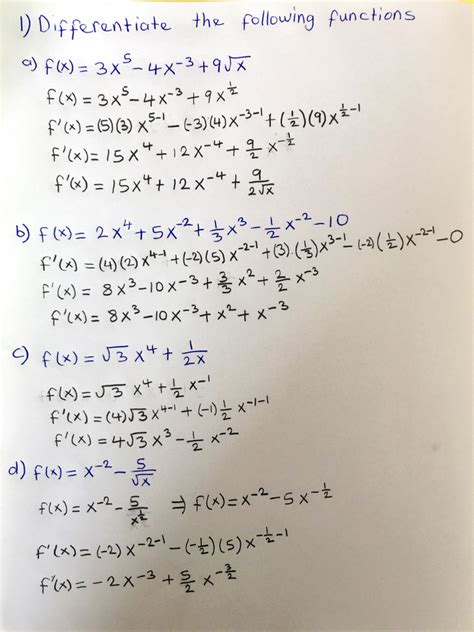 1) Differentiate the following functions
a) f(x) = 3x⁵ - 4x⁻³ + 9√x
f(x) = 3x⁵ - 4x⁻³ + 9x^½
f'(x) = (5)(3) x⁵⁻¹ - (-3)(4)x⁻³⁻¹ + (½)(9)x^(½-1)
f'(x) = 15x⁴ + 12x⁻⁴ + 9/2 x^(-½)
f'(x) = 15x⁴ + 12x⁻⁴ + 9/(2√x)
b) f(x) = 2x⁴ + 5x⁻² + ⅓x³ - ½x⁻² - 10
f'(x) = (4)(2)x⁴⁻¹ + (-2)(5)x⁻²⁻¹ + (3)·(⅓)x³⁻¹ - (-2)(½)x⁻²⁻¹ - 0
f'(x) = 8x³ - 10x⁻³ + 3/3 x² + 2/2 x⁻³
f'(x) = 8x³ - 10x⁻³ + x² + x⁻³
c) f(x) = √3 x⁴ + 1/(2x)
f(x) = √3 x⁴ + ½x⁻¹
f'(x) = (4)√3 x⁴⁻¹ + (-1)½ x⁻¹⁻¹
f'(x) = 4√3 x³ - ½ x⁻²
d) f(x) = x⁻² - 5/√x
f(x) = x⁻² - 5/x^½ ⇒ f(x) = x⁻² - 5x^(-½)
f'(x) = (-2)x⁻²⁻¹ - (-½)(5)x^(-½-1)
f'(x) = -2x⁻³ + 5/2 x^(-3/2)